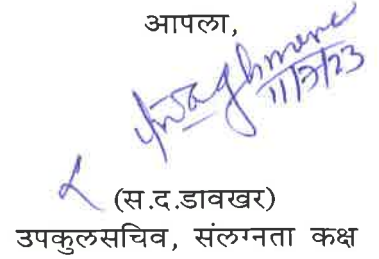 आपला,
11/7/23
(स.द.डावखर)
उपकुलसचिव, संलग्नता कक्ष